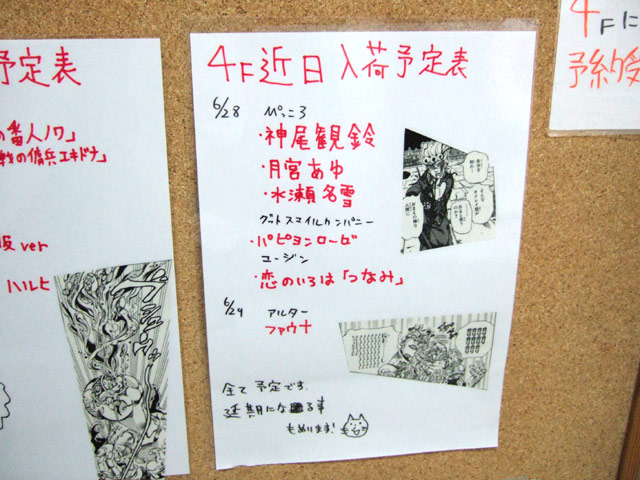 予定表
の番人ノワ」
戦の傭兵エキドナ」
ver
ハルヒ
4F近日入荷予定表
6/28 ぺっころ
・神尾観鈴
・月宮あゆ
・水瀬名雪
グットスマイルカンパニー
・パピヨンローゼ
ユージン
・恋のいろは「つなみ」
6/29 アルター
ファウナ
全て予定です.
延期になる事
もあります!
4Fに
予約受